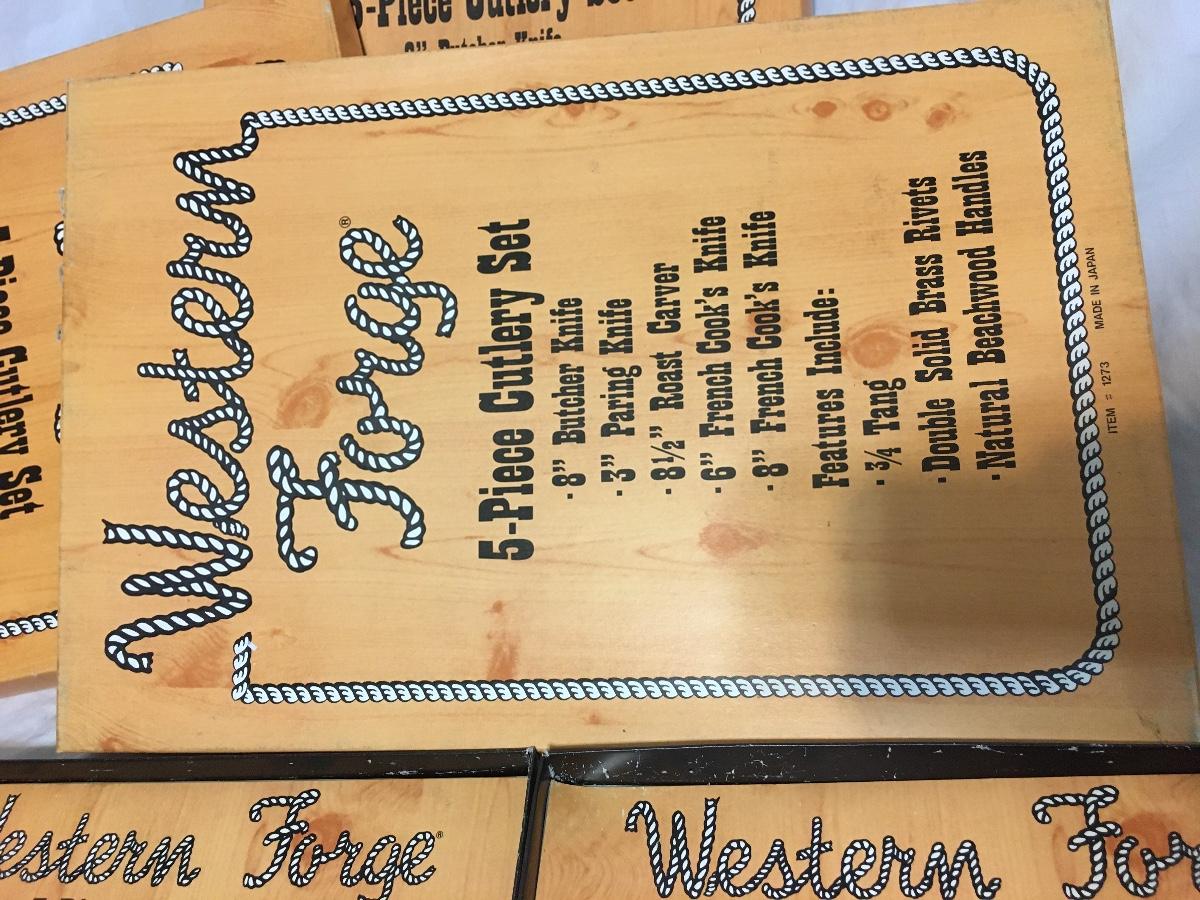 Western
Forge®
5-Piece Cutlery Set
· 8" Butcher Knife
· 3" Paring Knife
· 8½" Roast Carver
· 6" French Cook's Knife
· 8" French Cook's Knife
Features Include:
· ¾ Tang
· Double Solid Brass Rivets
· Natural Beachwood Handles
ITEM # 1273 MADE IN JAPAN
5-Piece Cutlery Set
8" Butcher Knife
Piece Cutlery Set
Western Forge®
Western